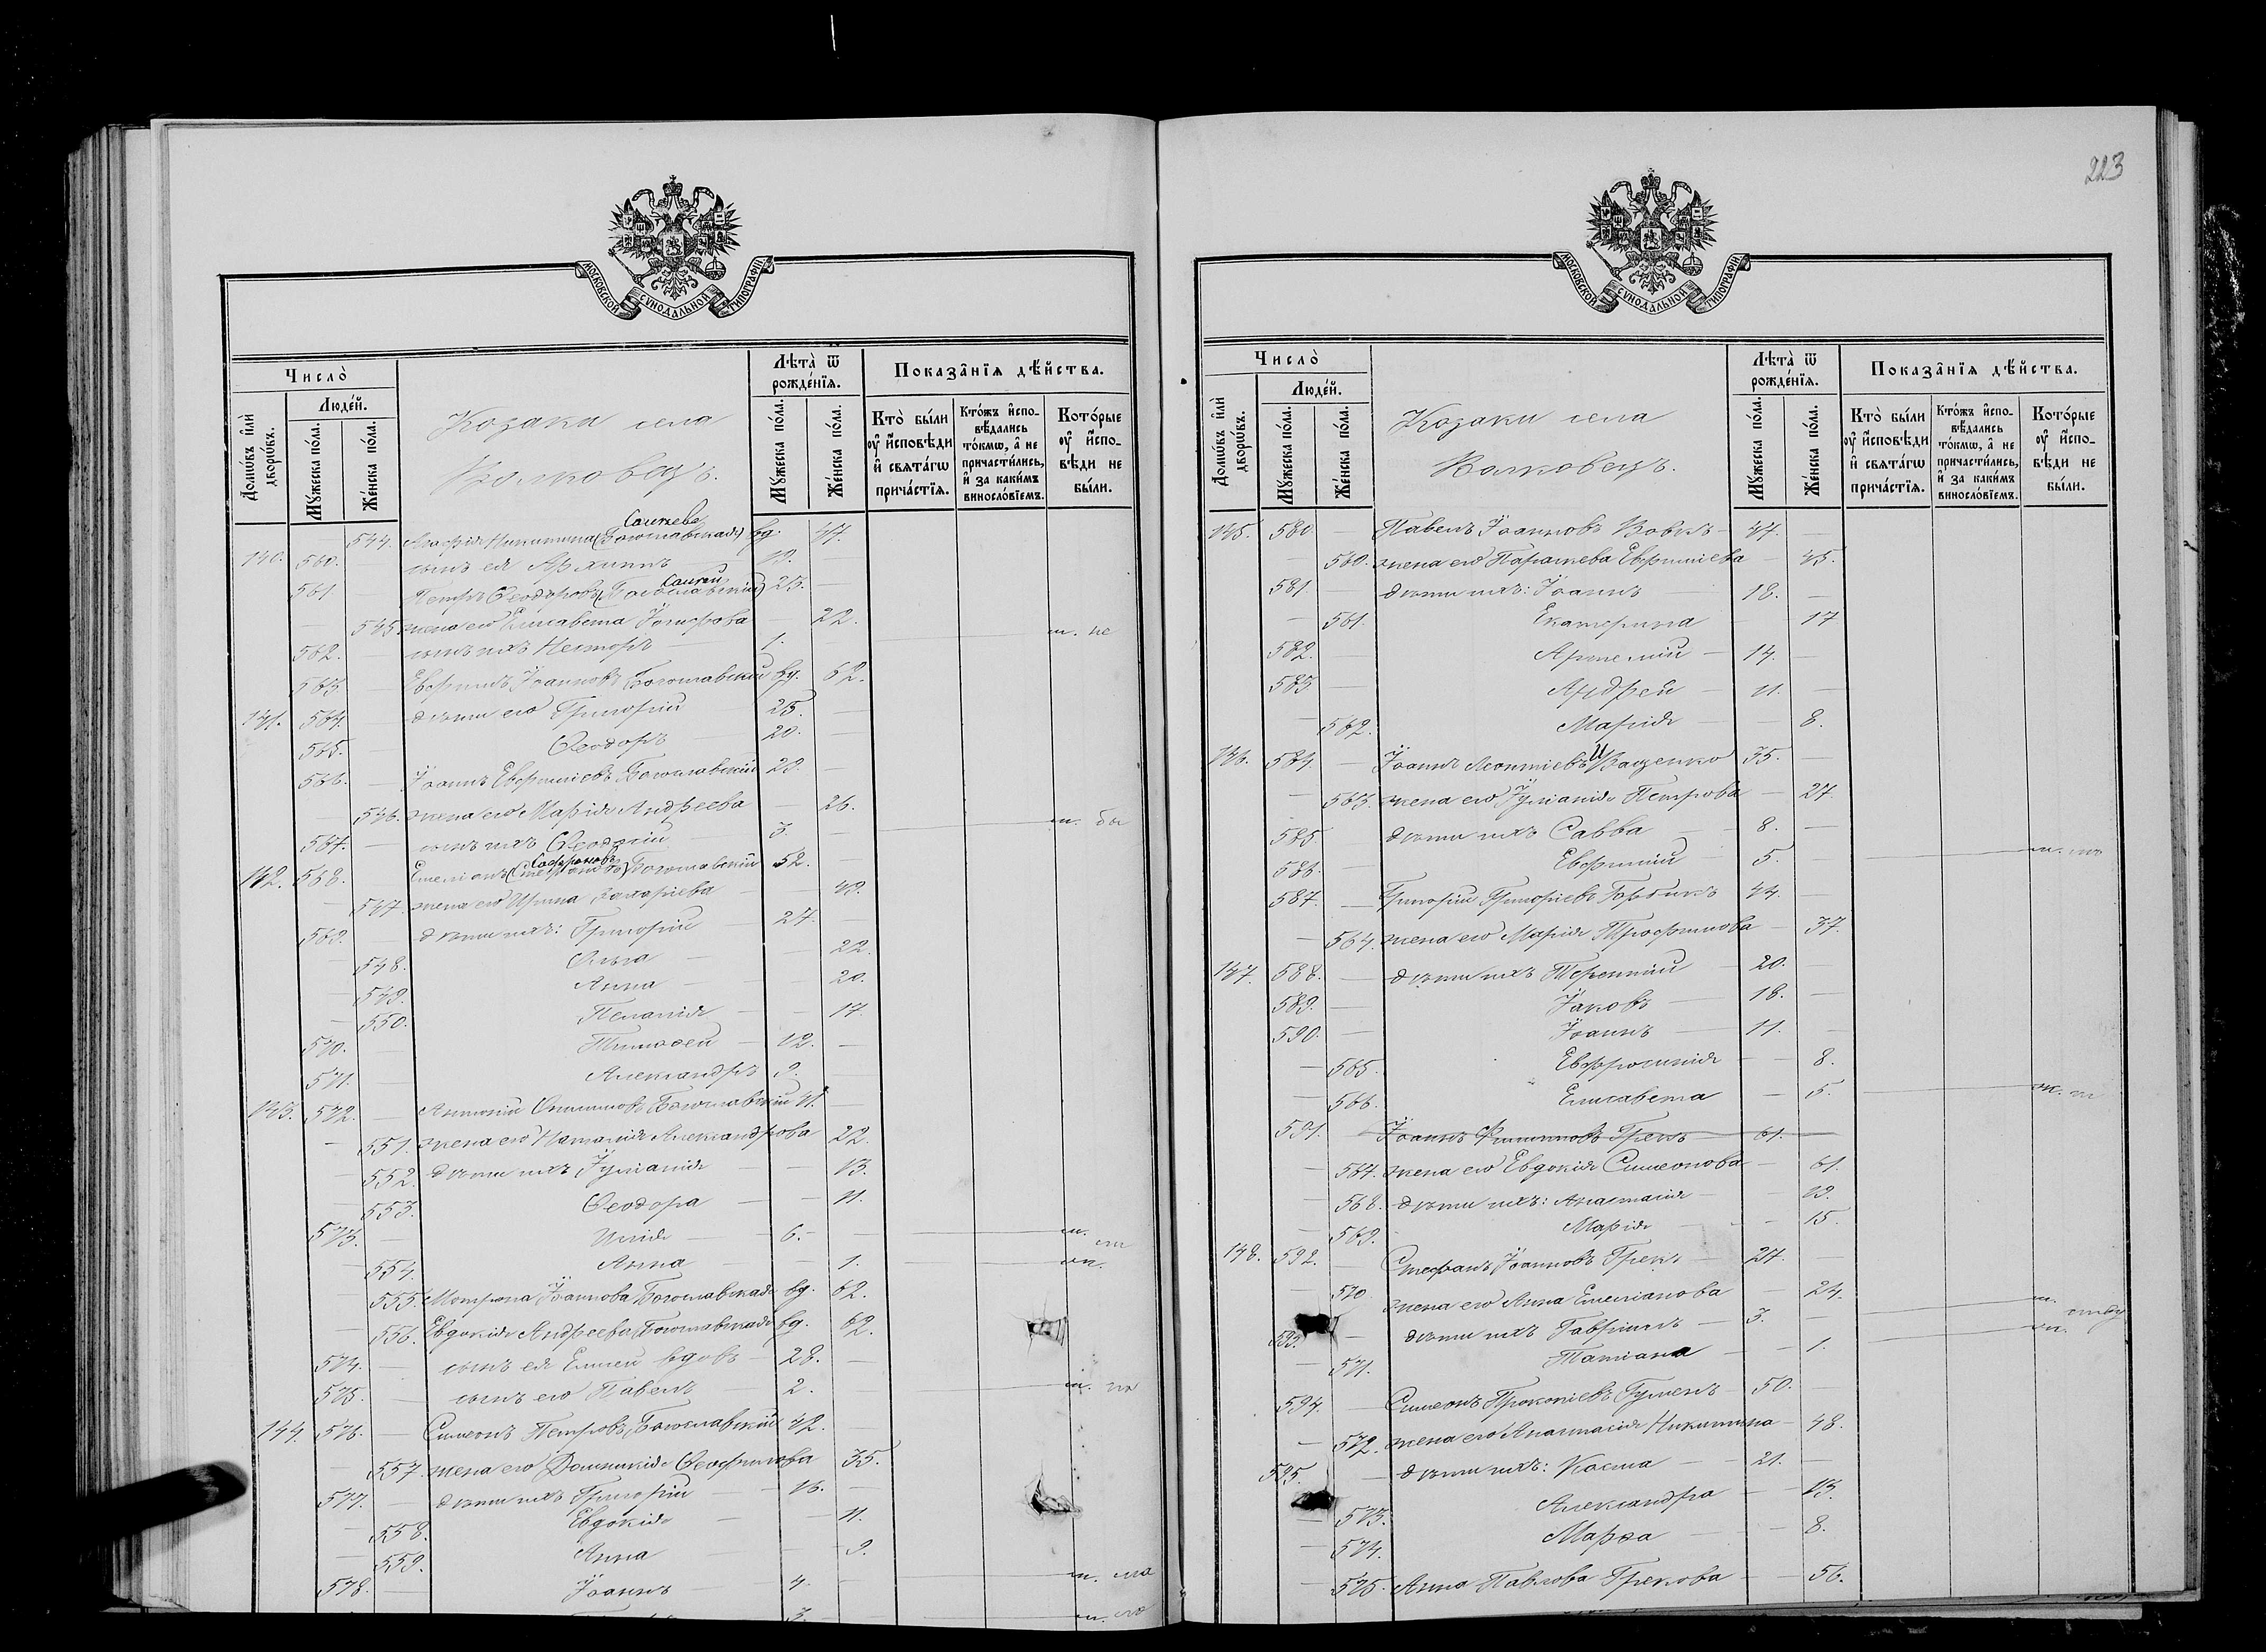 223
МОСКОВСКОЙ СУНОДАЛЬНОЙ ТИПОГРАФІИ
Число̀
Людéй.
Домѡ́въ и҆лѝ дворѡ́въ.
Мꙋ́жеска по́ла.
Же́нска по́ла.
Козаки села
Волковецъ.
Лѣта̀ ѿ рожде́нїѧ.
Мꙋ́жеска по́ла.
Же́нска по́ла.
Показа̑нїѧ дѣ́йства.
Кто̀ бы́ли ᲂу҆ и҆сповѣ́ди и҆ свѧта́гѡ прича́стїѧ.
Кто́жъ и҆спо-вѣ́дались то́кмѡ, а҆ не причасти́лись, и҆ за каки́мъ винослóвїемъ.
Кото́рые ᲂу҆ и҆спо-вѣ́ди не бы́ли.
544. Агафія Никитина (Богославская) вд. 47.
140. 560. — сынъ ея Архиппъ 19. —
561 — Петръ Ѳеодоровъ (Богославскій) 25. —
— 545 жена его Елисавета Іосифова — 22.
562. — сынъ ихъ Несторъ — 1. — м. не
563 — Евфимъ Іоанновъ Богославскій вд. 62.
141. 564. — дѣти его Григорій 25. —
565. — Ѳеодоръ 20. —
566. — Іоаннъ Евфиміевъ Богославскій 29. —
— 546. жена его Марія Андреева — 26.
567. — сынъ ихъ Ѳеодосій 3. — м. бы
142. 568. — Емеліанъ (Стефановъ) Софроновъ Богославскій 52.
— 547. жена его Ирина Захаріева — 49.
569. — дѣти ихъ: Григорій — 24. —
— 548. Ольга — — 22.
— 549. Анна — — 20.
— 550. Пелагія — — 17.
570. — Тимоѳей — 12. —
571. — Александръ 9. —
143. 572. — Антоній Филипповъ Богославскій 41. —
— 551. жена его Наталія Александрова 22.
— 552. дѣти ихъ Іуліанія — — 13.
— 553. Ѳеодора — — 11.
573. — Илія — 6. — м.
— 554. Анна — — 1. м.
— 555. Матрона Іоаннова Богославская вд. 62.
— 556. Евдокія Андреева Богославская вд. 62.
574. — сынъ ея Елисей вдовъ — 28. —
575. — сынъ его Павелъ — 2. — м. по
144. 576. — Симеонъ Петровъ Богославскій 42. —
— 557. жена его Домникія Ѳеофилова 35.
577. — дѣти ихъ Григорій — 16. —
— 558. Евдокія — — 11.
— 559. Анна — — 9.
578. — Іоаннъ — 4. — м. ма
3. — м. ло
МОСКОВСКОЙ СУНОДАЛЬНОЙ ТИПОГРАФІИ
Число̀
Людéй.
Домѡ́въ и҆лѝ дворѡ́въ.
Мꙋ́жеска по́ла.
Же́нска по́ла.
Козаки села
Волковецъ.
Лѣта̀ ѿ рожде́нїѧ.
Мꙋ́жеска по́ла.
Же́нска по́ла.
Показа̑нїѧ дѣ́йства.
Кто̀ бы́ли ᲂу҆ и҆сповѣ́ди и҆ свѧта́гѡ прича́стїѧ.
Кто́жъ и҆спо-вѣ́дались то́кмѡ, а҆ не причасти́лись, и҆ за каки́мъ винослóвїемъ.
Кото́рые ᲂу҆ и҆спо-вѣ́ди не бы́ли.
145. 580. — Павелъ Іоанновъ Вовкъ — 47. —
— 560. жена его Параскева Евфиміева — 45.
581. — дѣти ихъ: Іоаннъ — 18. —
— 561. Екатерина — — 17
582. — Артемій — 14. —
583. — Андрей — 11. —
— 562. Марія — — 8.
146. 584. — Іоаннъ Леонтіевъ Иващенко 35. —
— 563. жена его Іуліанія Петрова — 27.
585. — дѣти ихъ Савва — 8. —
586. — Евфимій — 5. — м.
587. — Григорій Григоріевъ Горбикъ 44. —
— 564. жена его Марія Трофимова — 37.
147. 588. — дѣти ихъ Терентій — 20. —
589. — Іаковъ — 18. —
590. — Іоаннъ — 11. —
— 565. Евфросинія — — 8.
— 566. Елисавета — — 5. м.
591. — Іоаннъ Филипповъ Грекъ — 61. —
— 564. жена его Евдокія Симеонова — 61.
— 568. дѣти ихъ: Анастасія — — 19.
— 569. Марія — — 15.
148. 592. — Стефанъ Іоанновъ Грекъ — 27. —
— 570 жена его Анна Емеліанова — 24.
593. — дѣти ихъ Гавріилъ — 3. — м.
— 571. Татіана — — 1. м.
594. — Симеонъ Прокопіевъ Гуменъ — 50. —
— 572. жена его Анастасія Никитина — 48.
595. — дѣти ихъ: Косма — — 21. —
— 573. Александра — — 13.
— 574. Марѳа — — 8.
— 575. Анна Павлова Грекова — — 56.